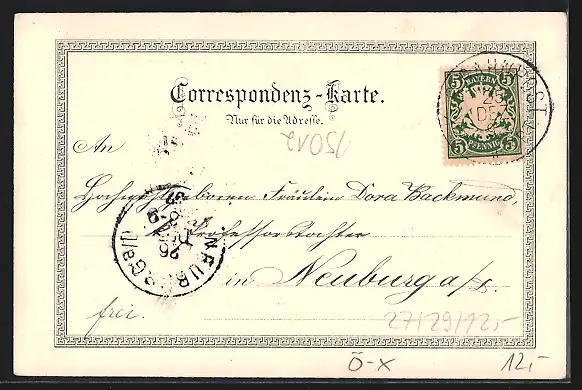 Correspondenz-Karte.
Nur für die Adresse.
5 BAYERN 5
5 PFENNIG 5
23
DEZ
15012
An
Hochwohlgeboren Fräulein Dora Backmund,
Professorstochter
in Neuburg a/D.
NEUBURG
26
frei.
27/29/12,-
Ö-X
12,-